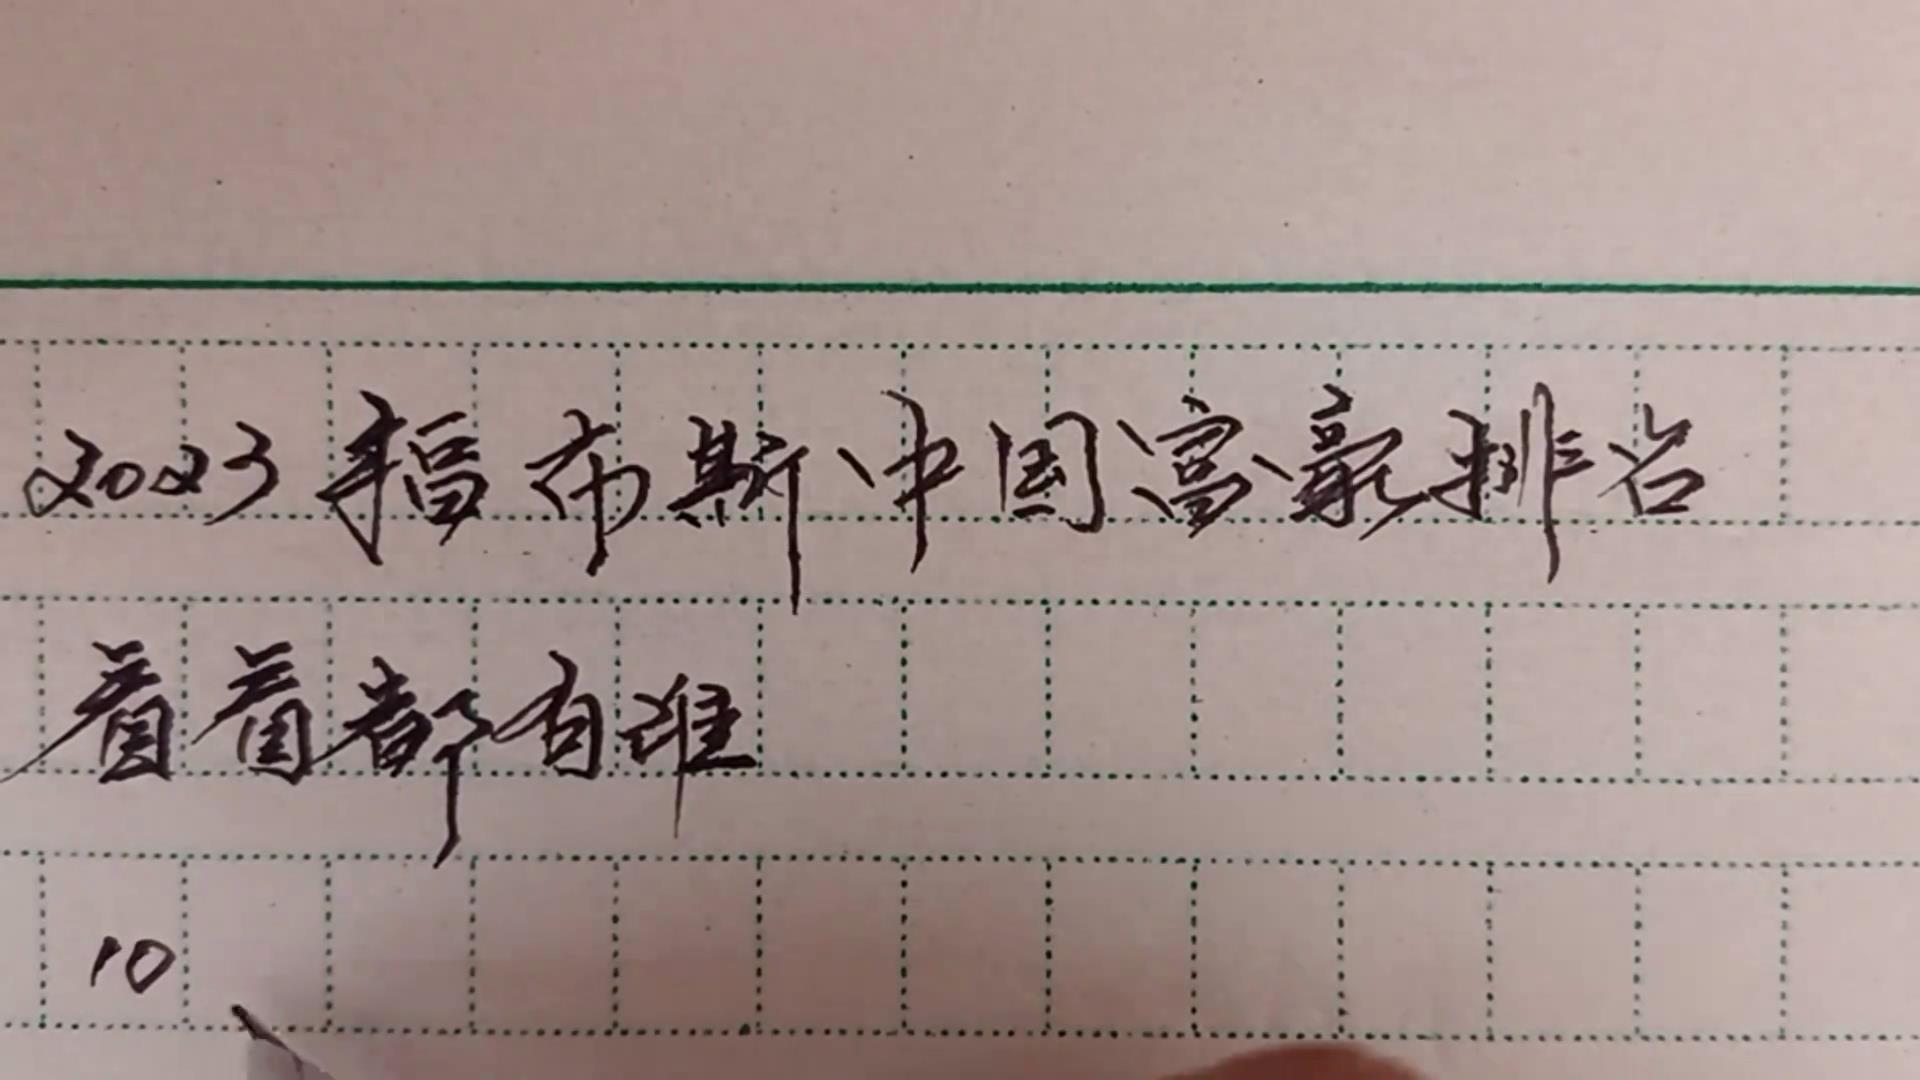 2023福布斯中国富豪排名
看看都有谁
10